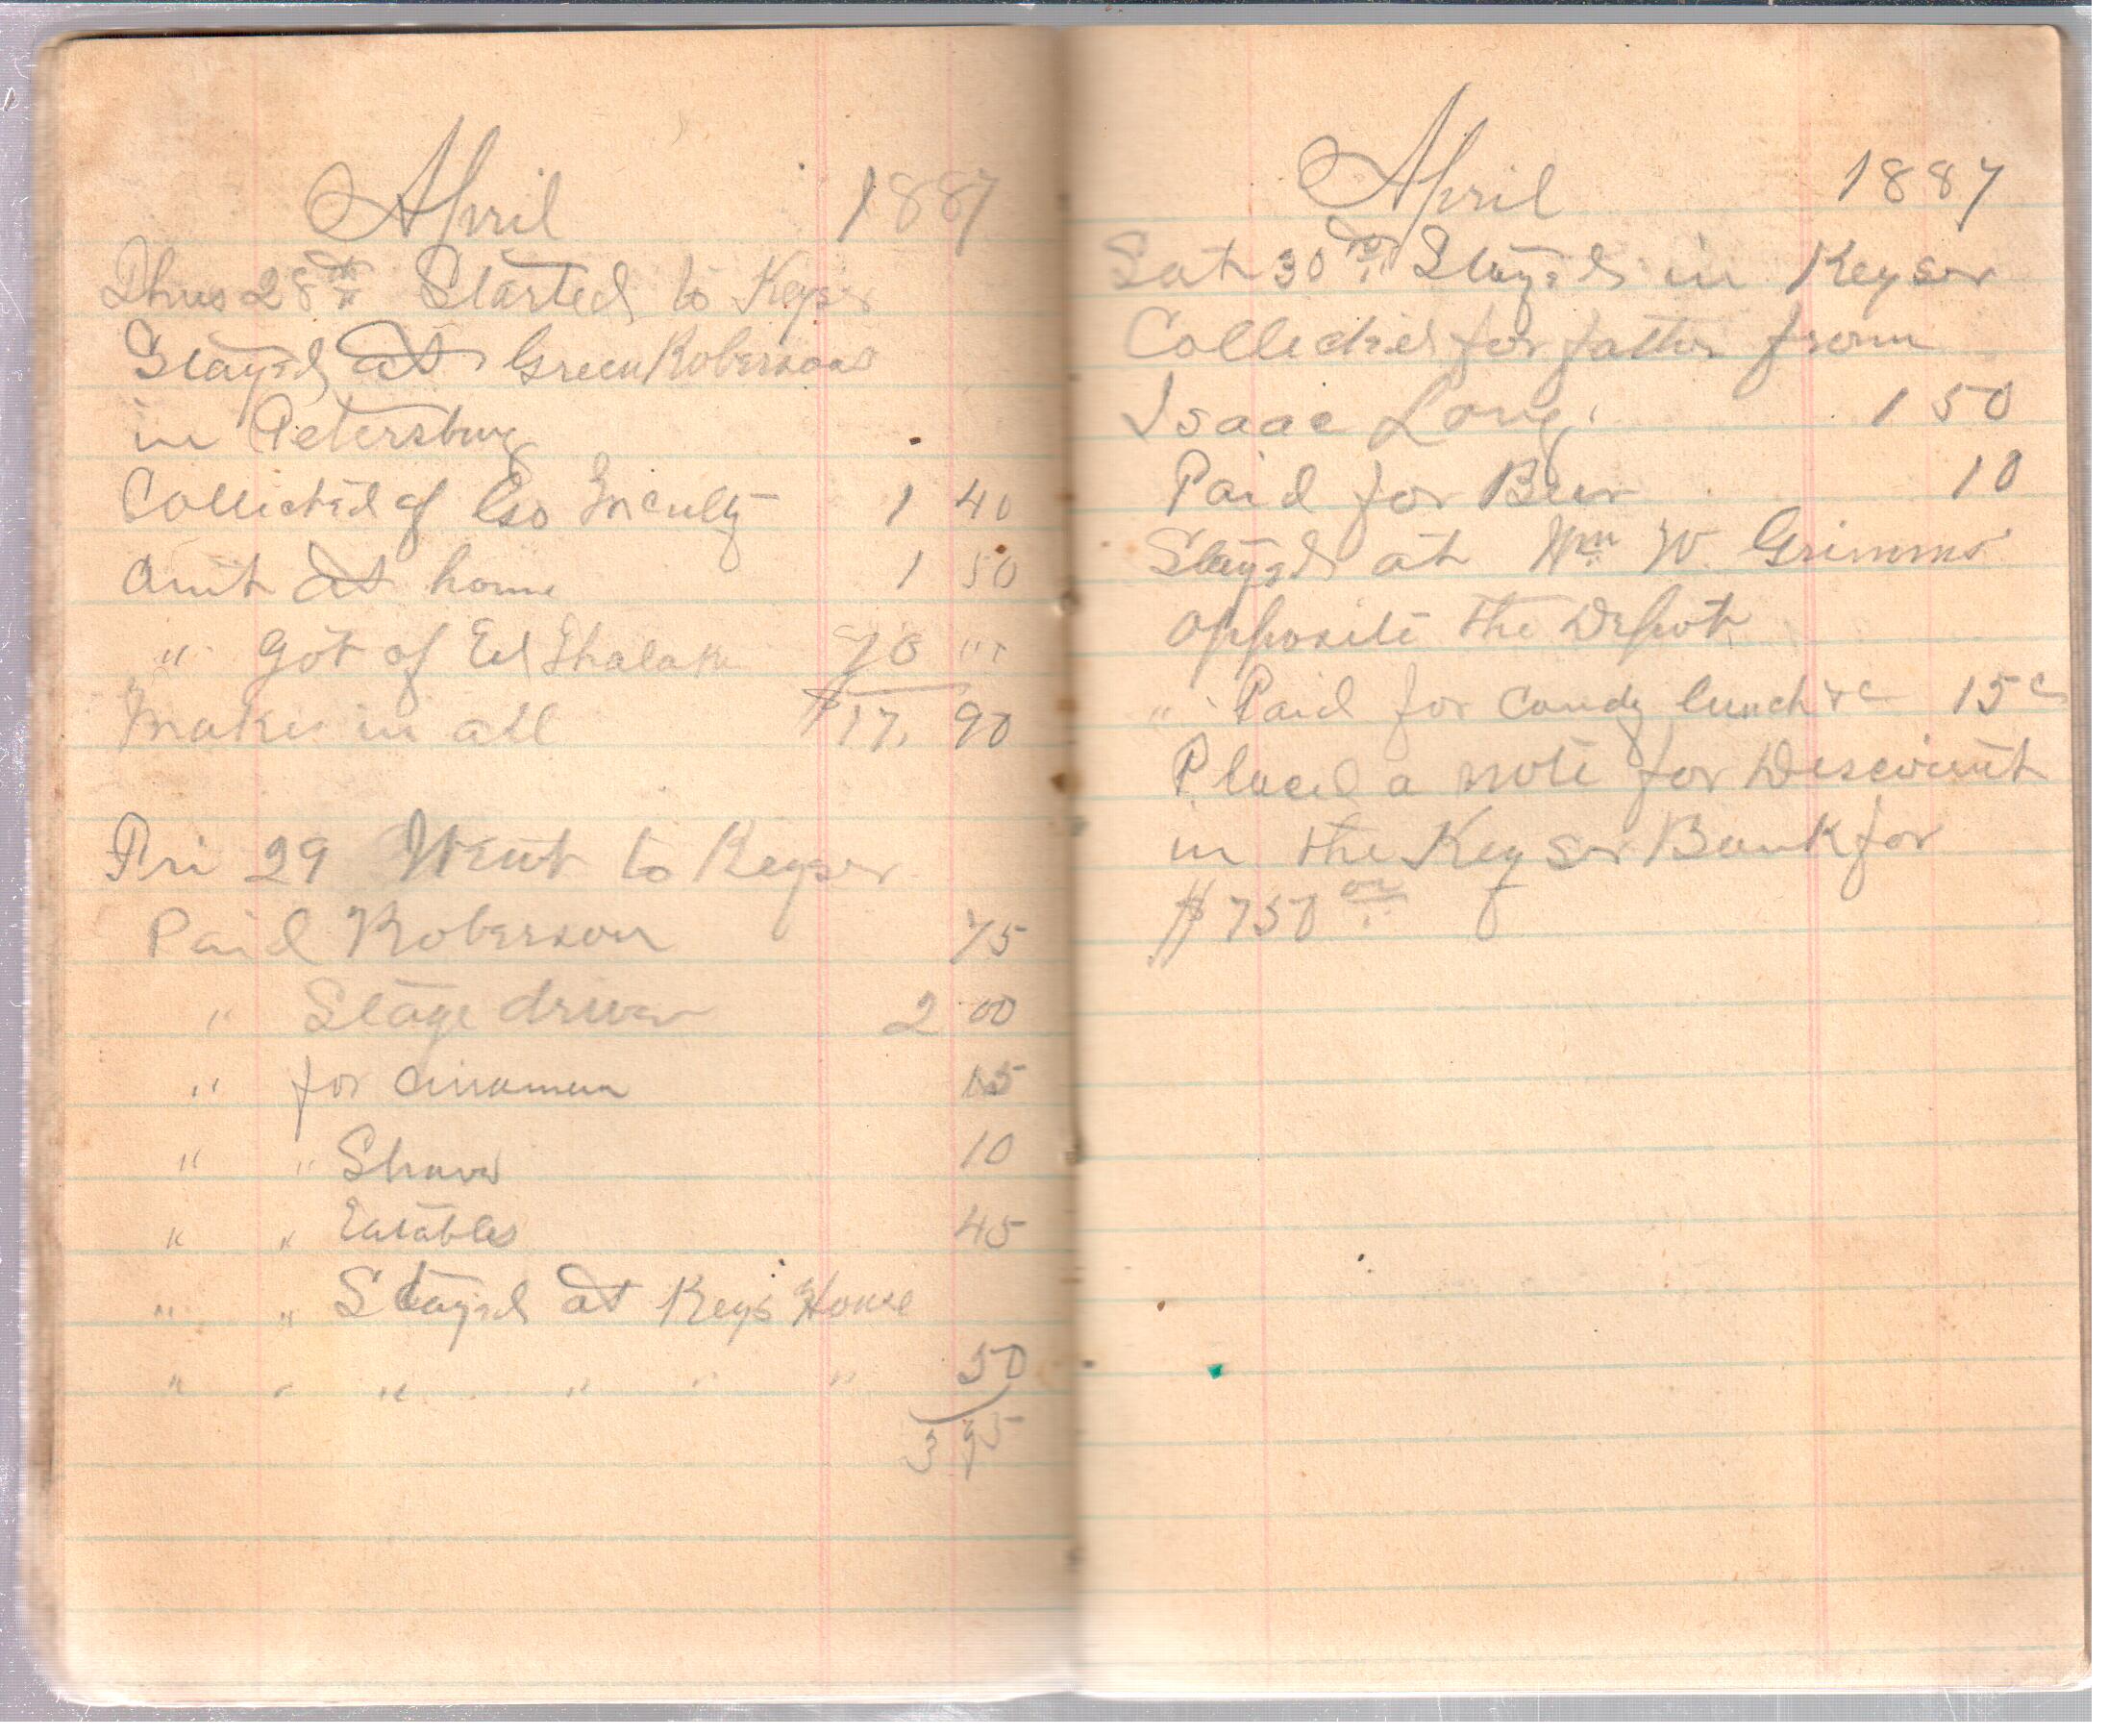 April 1887
Thus 28th Started to Keyser
Stayed at Green Robersons
in Petersburg
Collected of Geo McNulty 1 40
Amt at home 1 50
" got of Ed
Makes in all $17. 90
Fri 29 Went to Keyser
Paid Roberson 75
" Stage driver 2 00
" for Cinnamon 15
" " Shave 10
" " Eatables 45
" " Stayed at Keys House
" " " " " " 50
3 95
April 1887
Sat 30th Stayed in Keyser
Collected for father from
Isaac Long. 1 50
Paid for Beer 10
Stayed at Wm W. Grimms
Opposite the Depot
" Paid for Candy lunch &c 15c
Placed a note for Discount
in the Keyser Bank for
$750 00